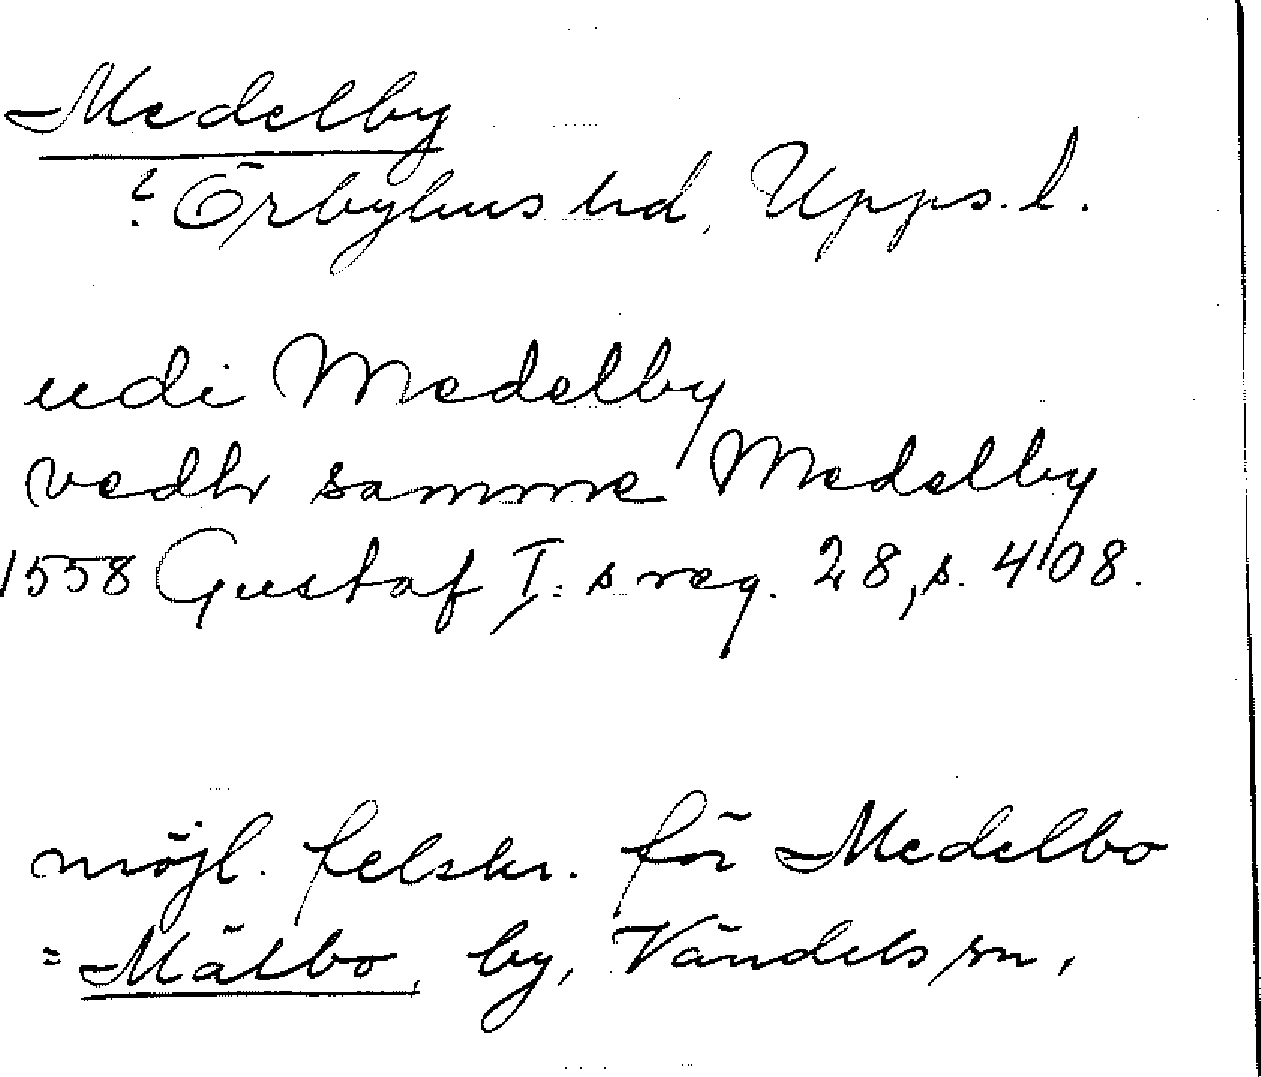 Medelby
? Örbyhus hd, Upps. l.
udi Medelby
vedhr samme Medelby
1558 Gustaf I:s reg. 28, s. 408.
möjl. felskr. för Medelbo
= Mälbo, by, Vändels sn,